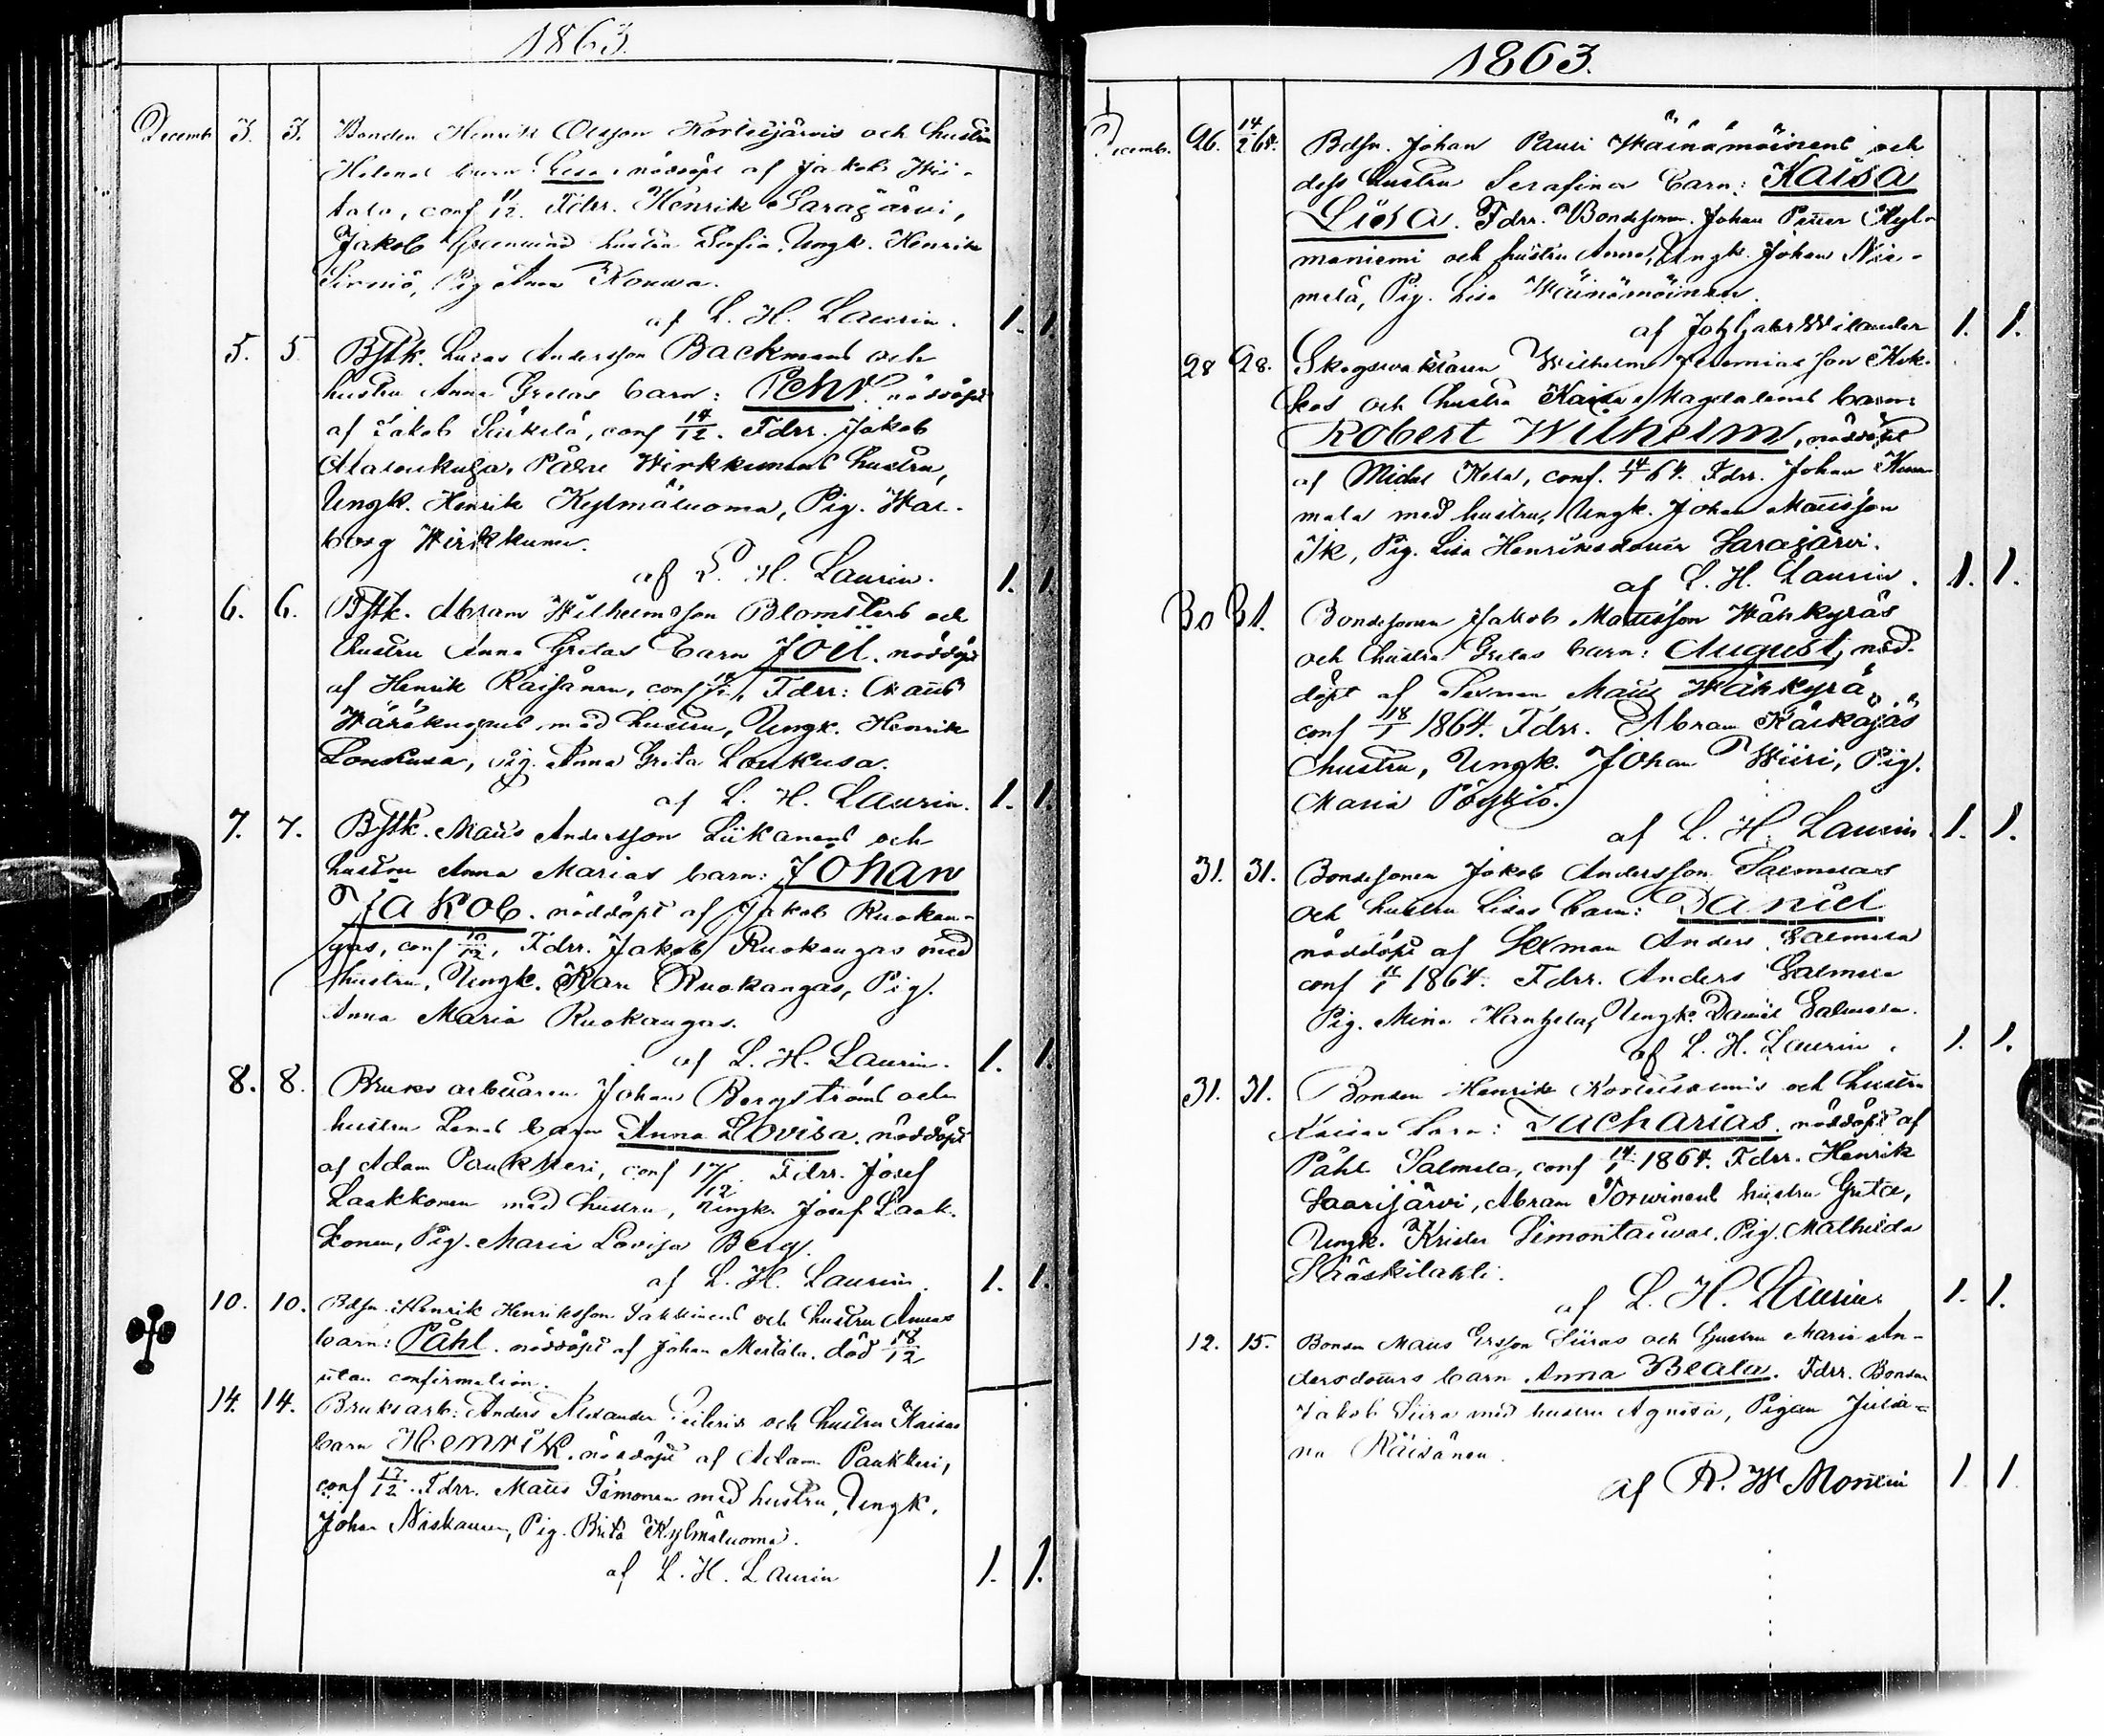 1863.
Decemb 3. 3. Bonden Henrik Olsson Kortesjärvis och hustru
Helenas barn: Lisa, nöddöpt af Jakob
conf 11/12. Fdrr. Henrik Sarajärvi,
Jakob hustru Sofia, Ungk. Henrik
Sirniö, Pig Anna Kouwa.
af L. H. Laurin. 1. 1.
5. 5 Bstk. Lucas Andersson Backmans och
hustru Anna Gretas barn: Pehr nöddöpt
af Jakob Särkelä, conf 14/12. Fdrr. Jakob
Alaloukusa, Påhl Wirkkunens hustru,
Ungk. Henrik Kylmäluoma, Pig. Wal-
borg Wirkkunen.
af L. H. Laurin. 1. 1.
6. 6. Bstk. Abram Wilhelmsson Blomsters och
hustru Anna Gretas barn Joël. nöddöpt
af Henrik Räisänen, conf Fdrr: Matts
med hustru, Ungk. Henrik
Loukusa, Pig. Anna Greta Loukusa.
af L. H. Laurin. 1. 1.
7. 7. Bstk. Matts Andersson Liikanens och
hustru Anna Marias barn: Johan
Jakob. nöddöpt af Jakob Ruokan-
gas, conf Fdrr. Jakob Ruokangas med
hustru, Ungk. Karl Ruokangas, Pig.
Anna Maria Ruokangas.
af L. H. Laurin. 1. 1.
8. 8. Bruks arbetaren Johan Bergströms och
hustru Lenas barn Anna Lovisa. nöddöpt
af Adam Paukkeri, conf 17/12. Fdrr. Josef
Laakkonen med hustru, Ungk. Josef Laak-
konen, Pig. Maria Lovisa Berg.
af L. H. Laurin. 1. 1.
10. 10. Bdsn. Henrik Henriksson och hustru Annas
barn: Påhl. nöddöpt af Johan Mertala. död 18/12
utan confirmation.
14. 14. Bruksarb: Anders Alexander och hustru Kaisas
barn Henrik. nöddöpt af Adam Paukkeri,
conf 17/12. Fdrr. Matts Timonen med hustru, Ungk.
Johan Niskanen, Pig. Brita Kylmäluoma.
af L. H. Laurin 1. 1.
1863.
Decemb. 26. 14/2 64. Bdsn. Johan Pauli Wäinämöinens och
dess hustru Serafinas barn: Kaisa
Lisa. Fdrr. Bondesonen Johan Petter Kyl-
maniemi och hustru Anna, Ungk. Johan Nie-
melä, Pig. Lisa Wäinämöinen.
af Joh Gabr Wilander 1. 1.
28 28. Skogswaktaren Wilhelm Jeremiasson
och hustru Kaisa Magdalenas barn:
Robert Wilhelm, nöddöpt
af Midas Kela, conf. 14/1 64. Fdrr. Johan
med hustru, Ungk. Johan Mattsson
Pig. Lisa Henriksdotter Sarajärvi.
af L. H. Laurin. 1. 1.
30 31. Bondesonen Jakob Mattsson Wähkyräs
och hustru Gretas barn: August, nöd-
döpt af Sexman Matts Wähkyrä,
conf 18/1 1864. Fdrr. Abram
hustru, Ungk. Johan Wiiri, Pig.
Maria Pöyskiö.
af L. H. Laurin 1. 1.
31. 31. Bondesonen Jakob Andersson Salmelas
och hustru Lisas barn: Daniel
nöddöpt af Sexman Anders Salmela
conf 1864. Fdrr. Anders Salmela
Pig. Mina Ungk. Daniel Salmela.
af L. H. Laurin. 1. 1.
31. 31. Bonden Henrik Kortesalmis och hustru
Kaisas barn: Zacharias. nöddöpt af
Påhl Salmela, conf 14/1 1864. Fdrr. Henrik
Saarijärvi, Abram Torwinens hustru Greta,
Ungk. Krister Simontaiwal. Pig. Mathilda
Hräskilahti.
af L. H. Laurin 1. 1.
12. 15. Bonden Matts Ersson Siiras och hustru Maria An-
dersdotters barn Anna Beata. Fdrr. Bonden
Jakob Siira med hustru Agneta, Pigan Julia-
na Räisänen.
af R. W Montin 1. 1